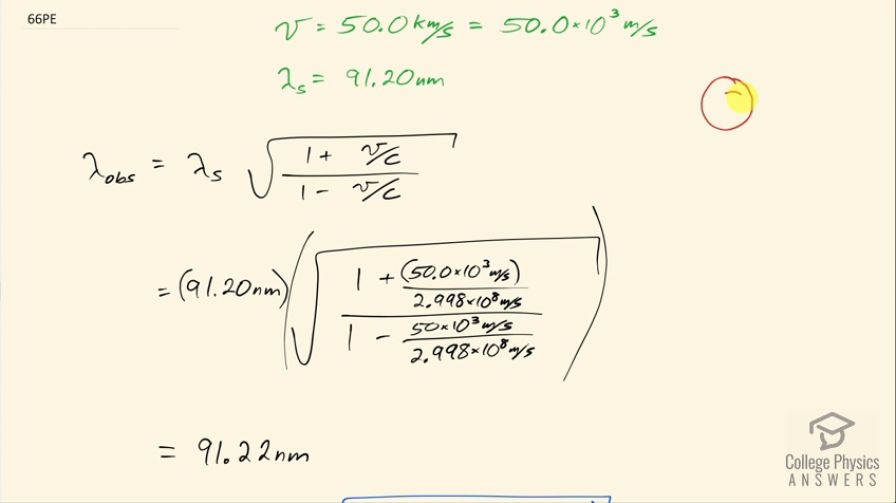 66PE
v = 50.0 km/s = 50.0×10³ m/s
λs = 91.20nm
λobs = λs √((1 + v/c)/(1 - v/c))
= (91.20nm)(√((1 + (50.0×10³m/s)/2.998×10⁸m/s)/(1 - 50×10³m/s/2.998×10⁸m/s)))
= 91.22nm
College Physics
ANSWERS